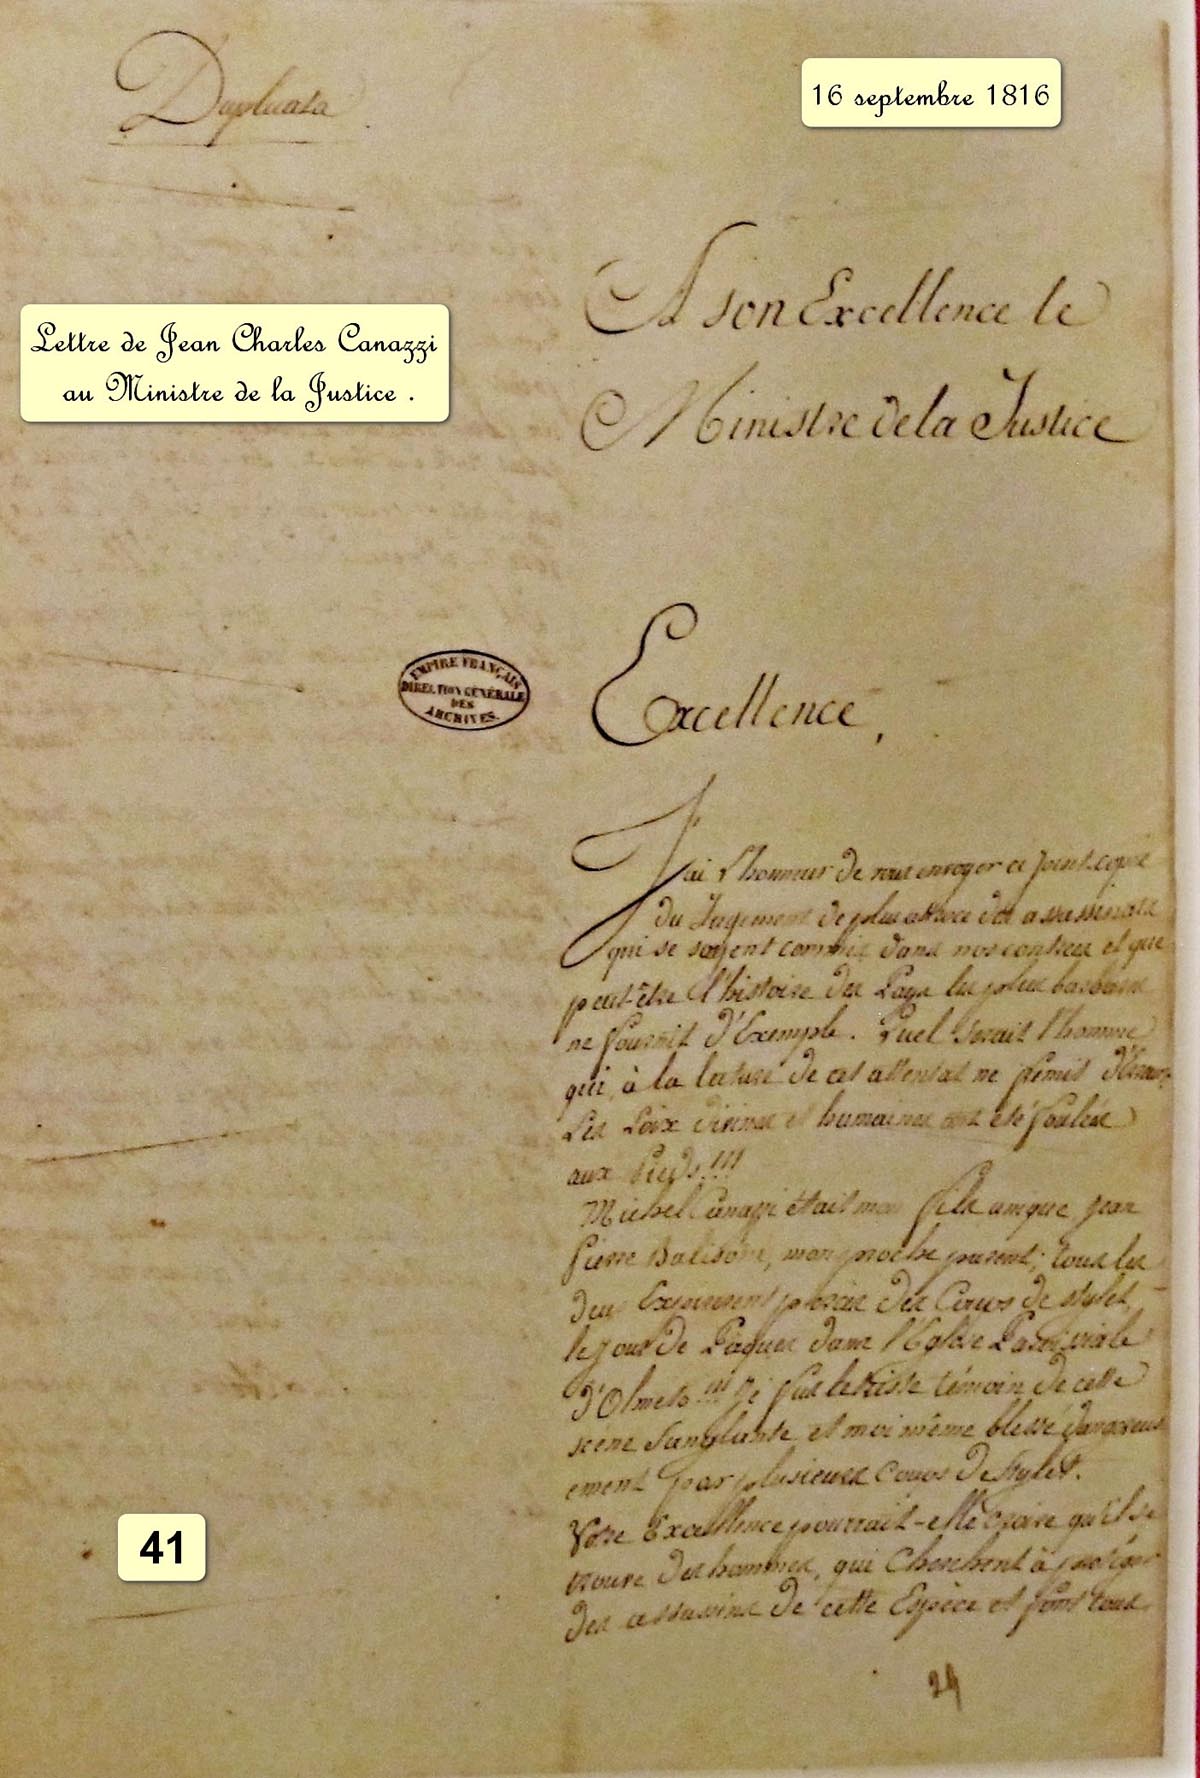 Duplicata
16 septembre 1816
A son Excellence le
Ministre de la Justice
Lettre de Jean Charles Canazzi
au Ministre de la Justice .
EMPIRE FRANÇAIS
DIRECTION GÉNÉRALE
DES
ARCHIVES.
Excellence,
J'ai l'honneur de vous envoyer ci joint copie
du Jugement de plus atroce des assassinats
qui se soyent commis dans nos contrees et que
peut-être l'histoire des Pays les plus barbares
ne fournit d'Exemple. Quel serait l'homme
qui, à la lecture de cet attentat ne frémit d'horreur.
Les Loix divines et humaines ont été foulées
aux Pieds !!!
Michel Canazzi était mon fils unique, Jean
Pierre Balisoni, mon proche parent; tous les
deux Expirerent percés des Coups de stylet,
le jour de Pâques dans l'Eglise Paroissiale
d'Olmeto !!! Je fus le triste témoin de cette
scène sanglante, et moi même blessé dangereus
ement par plusieurs coups de stylet.
Votre Excellence pourrait-elle croire qu'il se
trouve des hommes, qui Cherchent à protéger
des assassins de cette Espèce et font tous
41
24